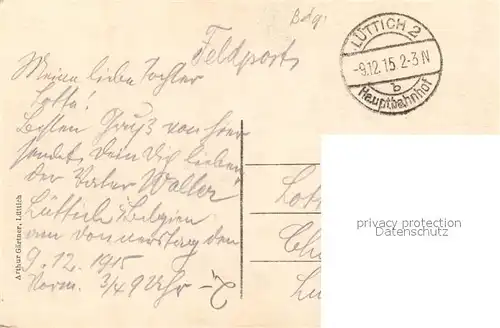 Bdg.
Feldpost
LÜTTICH 2
-9.12.15.2-3N
b
Hauptbahnhof
Meine liebe Tochter
Lotte!
Besten Gruß von hier
sendet Dein Dich lieben
der Vater Walter
Lüttich Belgien
am Donnerstag den
9.12.1915
Vorm. 3/4 9 Uhr
Arthur Gärtner, Lüttich
privacy protection
veil